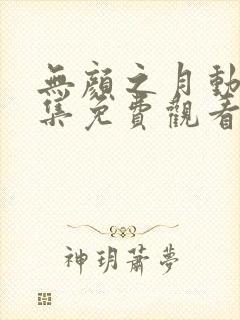 無顏之月動
集免費觀看
神玥蕭夢